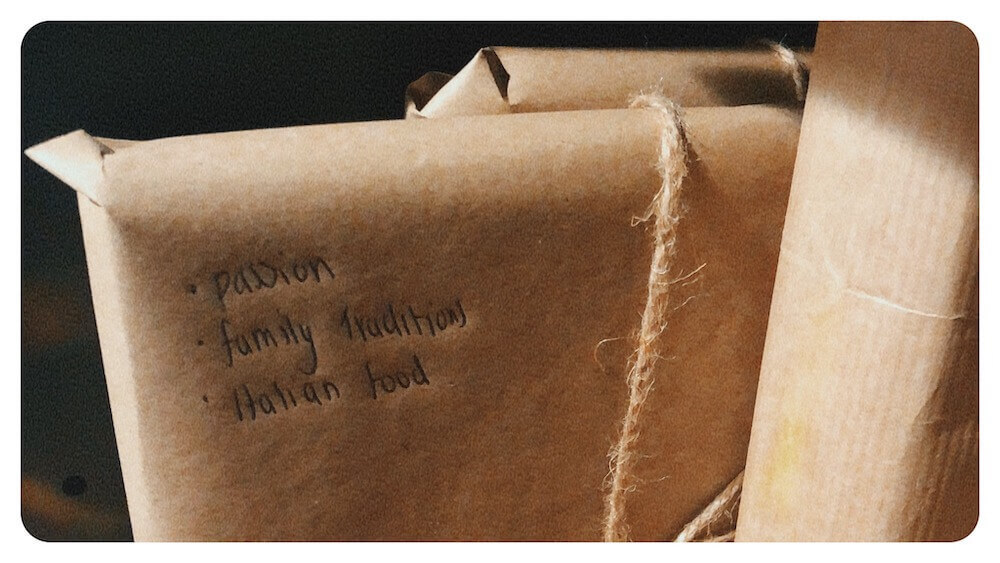 · passion
· family traditions
· Italian food